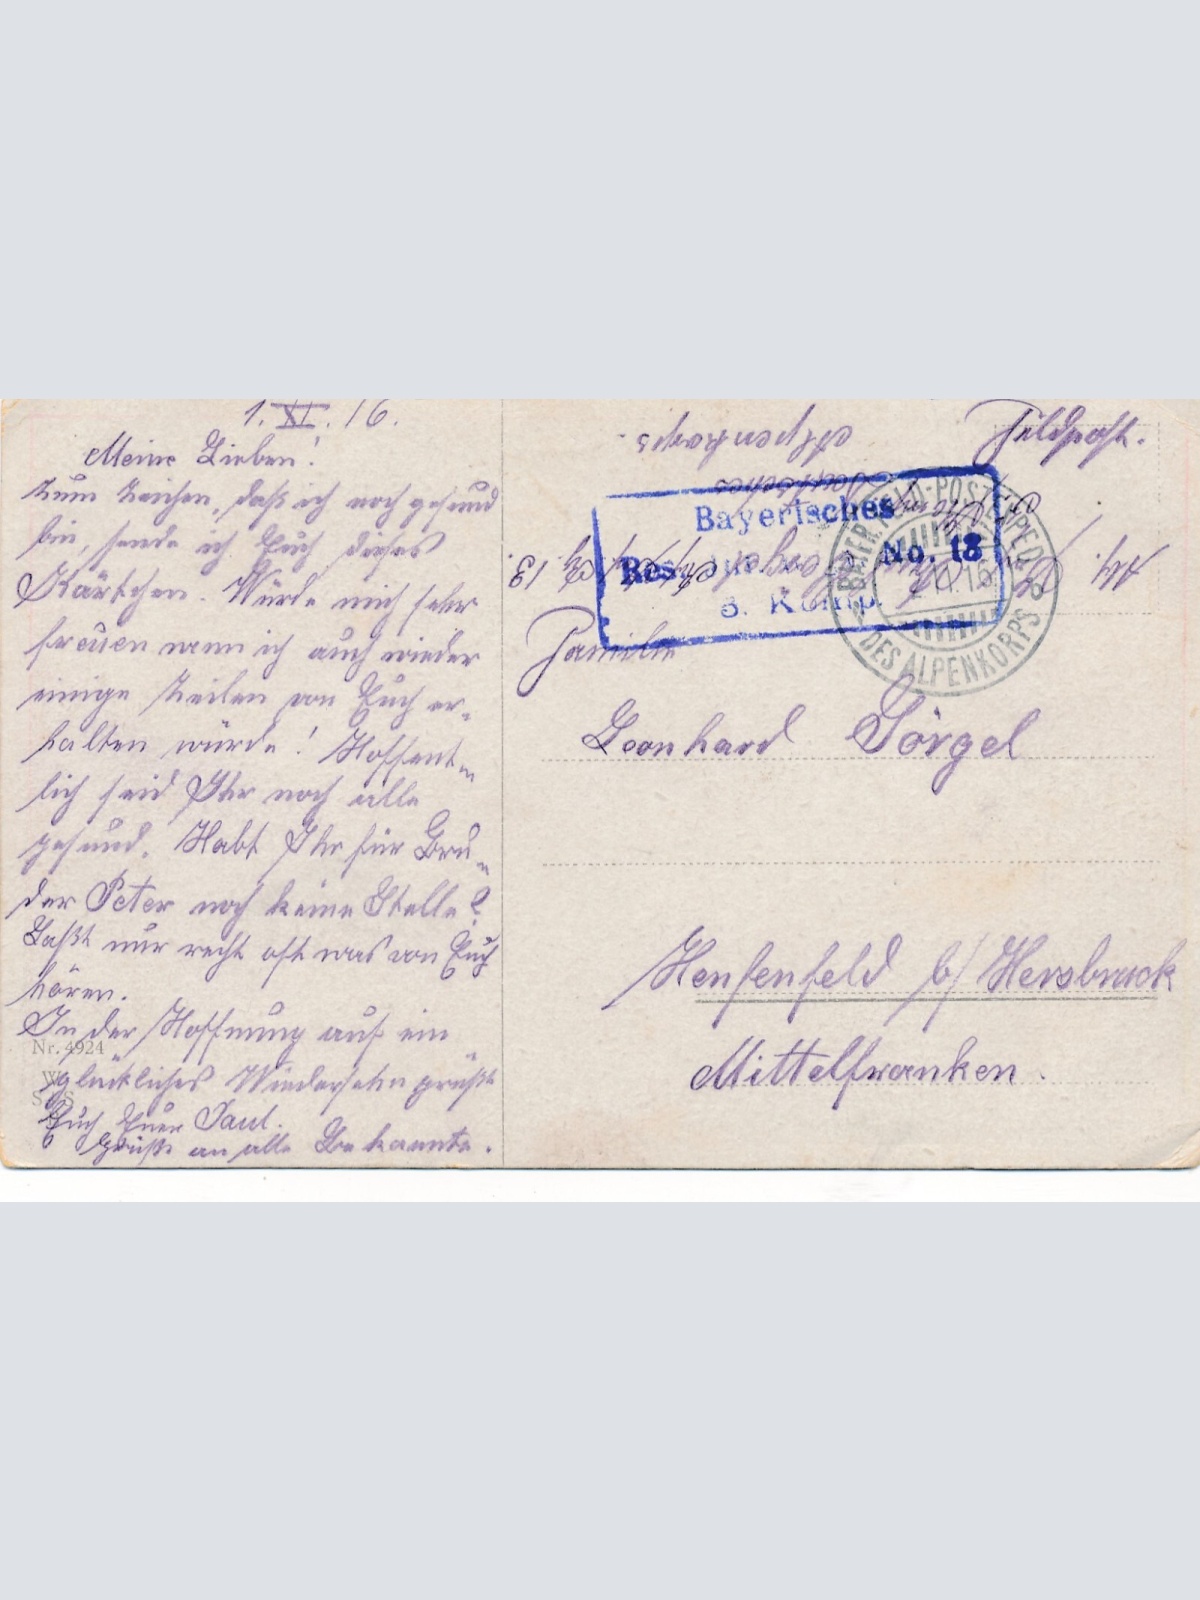 1. XI. 16.
Meine Lieben!
Zum Zeichen, daß ich noch gesund
bin, sende ich Euch dieses
Kärtchen. Würde mich sehr
freuen wenn ich auch wieder
einige Zeilen von Euch er-
halten würde! Hoffent-
lich seid Ihr noch alle
gesund. Habt Ihr für Bru-
der Peter noch keine Stelle?
Laßt nur recht oft was von Euch
hören.
In der Hoffnung auf ein
glückliches Wiedersehn grüßt
Euch Euer Paul.
Grüße an alle Bekannte.
Nr. 4924
W.
S.
Feldpost.
Alpenkorps
Deutsches
13.
Bayerisches
Res No. 18
3. Komp.
BAYER. FELD-POSTEXPED.
DES ALPENKORPS
Familie
Leonhard Görgel
Henfenfeld b/Hersbruck
Mittelfranken.